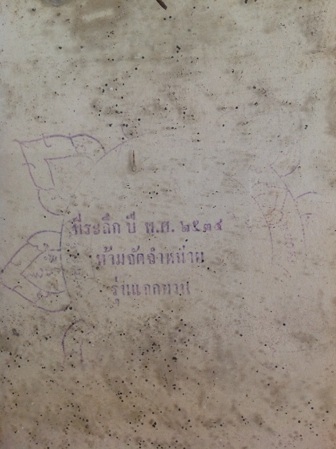 ที่ระลึก ปี พ.ศ. ๒๕๓๔
ห้ามจัดจำหน่าย
รุ่นแจกทาน